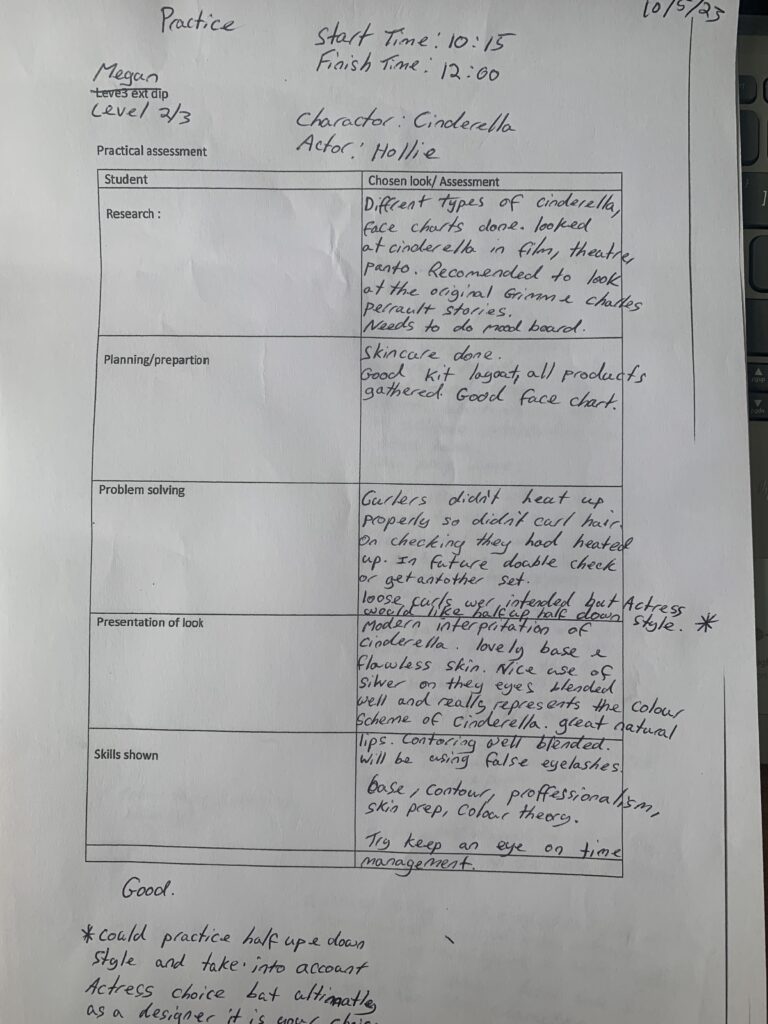 10/5/23
Practice
Start Time: 10:15
Finish Time: 12:00
Megan
Leve3 ext dip
Level 2/3
Charactor: Cinderella
Actor: Hollie
Practical assessment
Student
Chosen look/ Assessment
Research :
Diffrent types of cinderella,
face charts done. looked
at cinderella in film, theatre,
panto. Recomended to look
at the original Grimme charles
perrault stories.
Needs to do mood board.
Planning/prepartion
Skincare done.
Good kit layout, all products
gathered. Good face chart.
Problem solving
Curlers didn't heat up
properly so didn't curl hair.
On checking they had heated
up. In future double check
or get antother set.
loose curls wer intended but Actress
would like half up half down style. *
Presentation of look
Modern interpritation of
cinderella. lovely base &
flawless skin. Nice use of
silver on they eyes blended
well and really represents the colour
scheme of Cinderella. great natural
lips. Contoring well blended.
Will be using false eyelashes.
Skills shown
base, contour, proffessionalism,
skin prep, colour theory.
Try keep an eye on time
management.
Good.
* could practice half up & down
style and take into account
Actress choice but
as a designer it is your